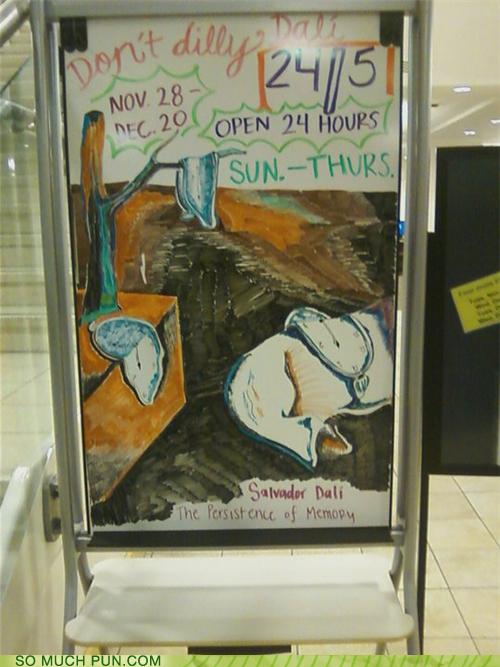 Don't dilly Dalí
24/5
NOV. 28 -
DEC. 20
OPEN 24 HOURS
SUN. - THURS.
Salvador Dalí
The Persistence of Memory
SO MUCH PUN.COM